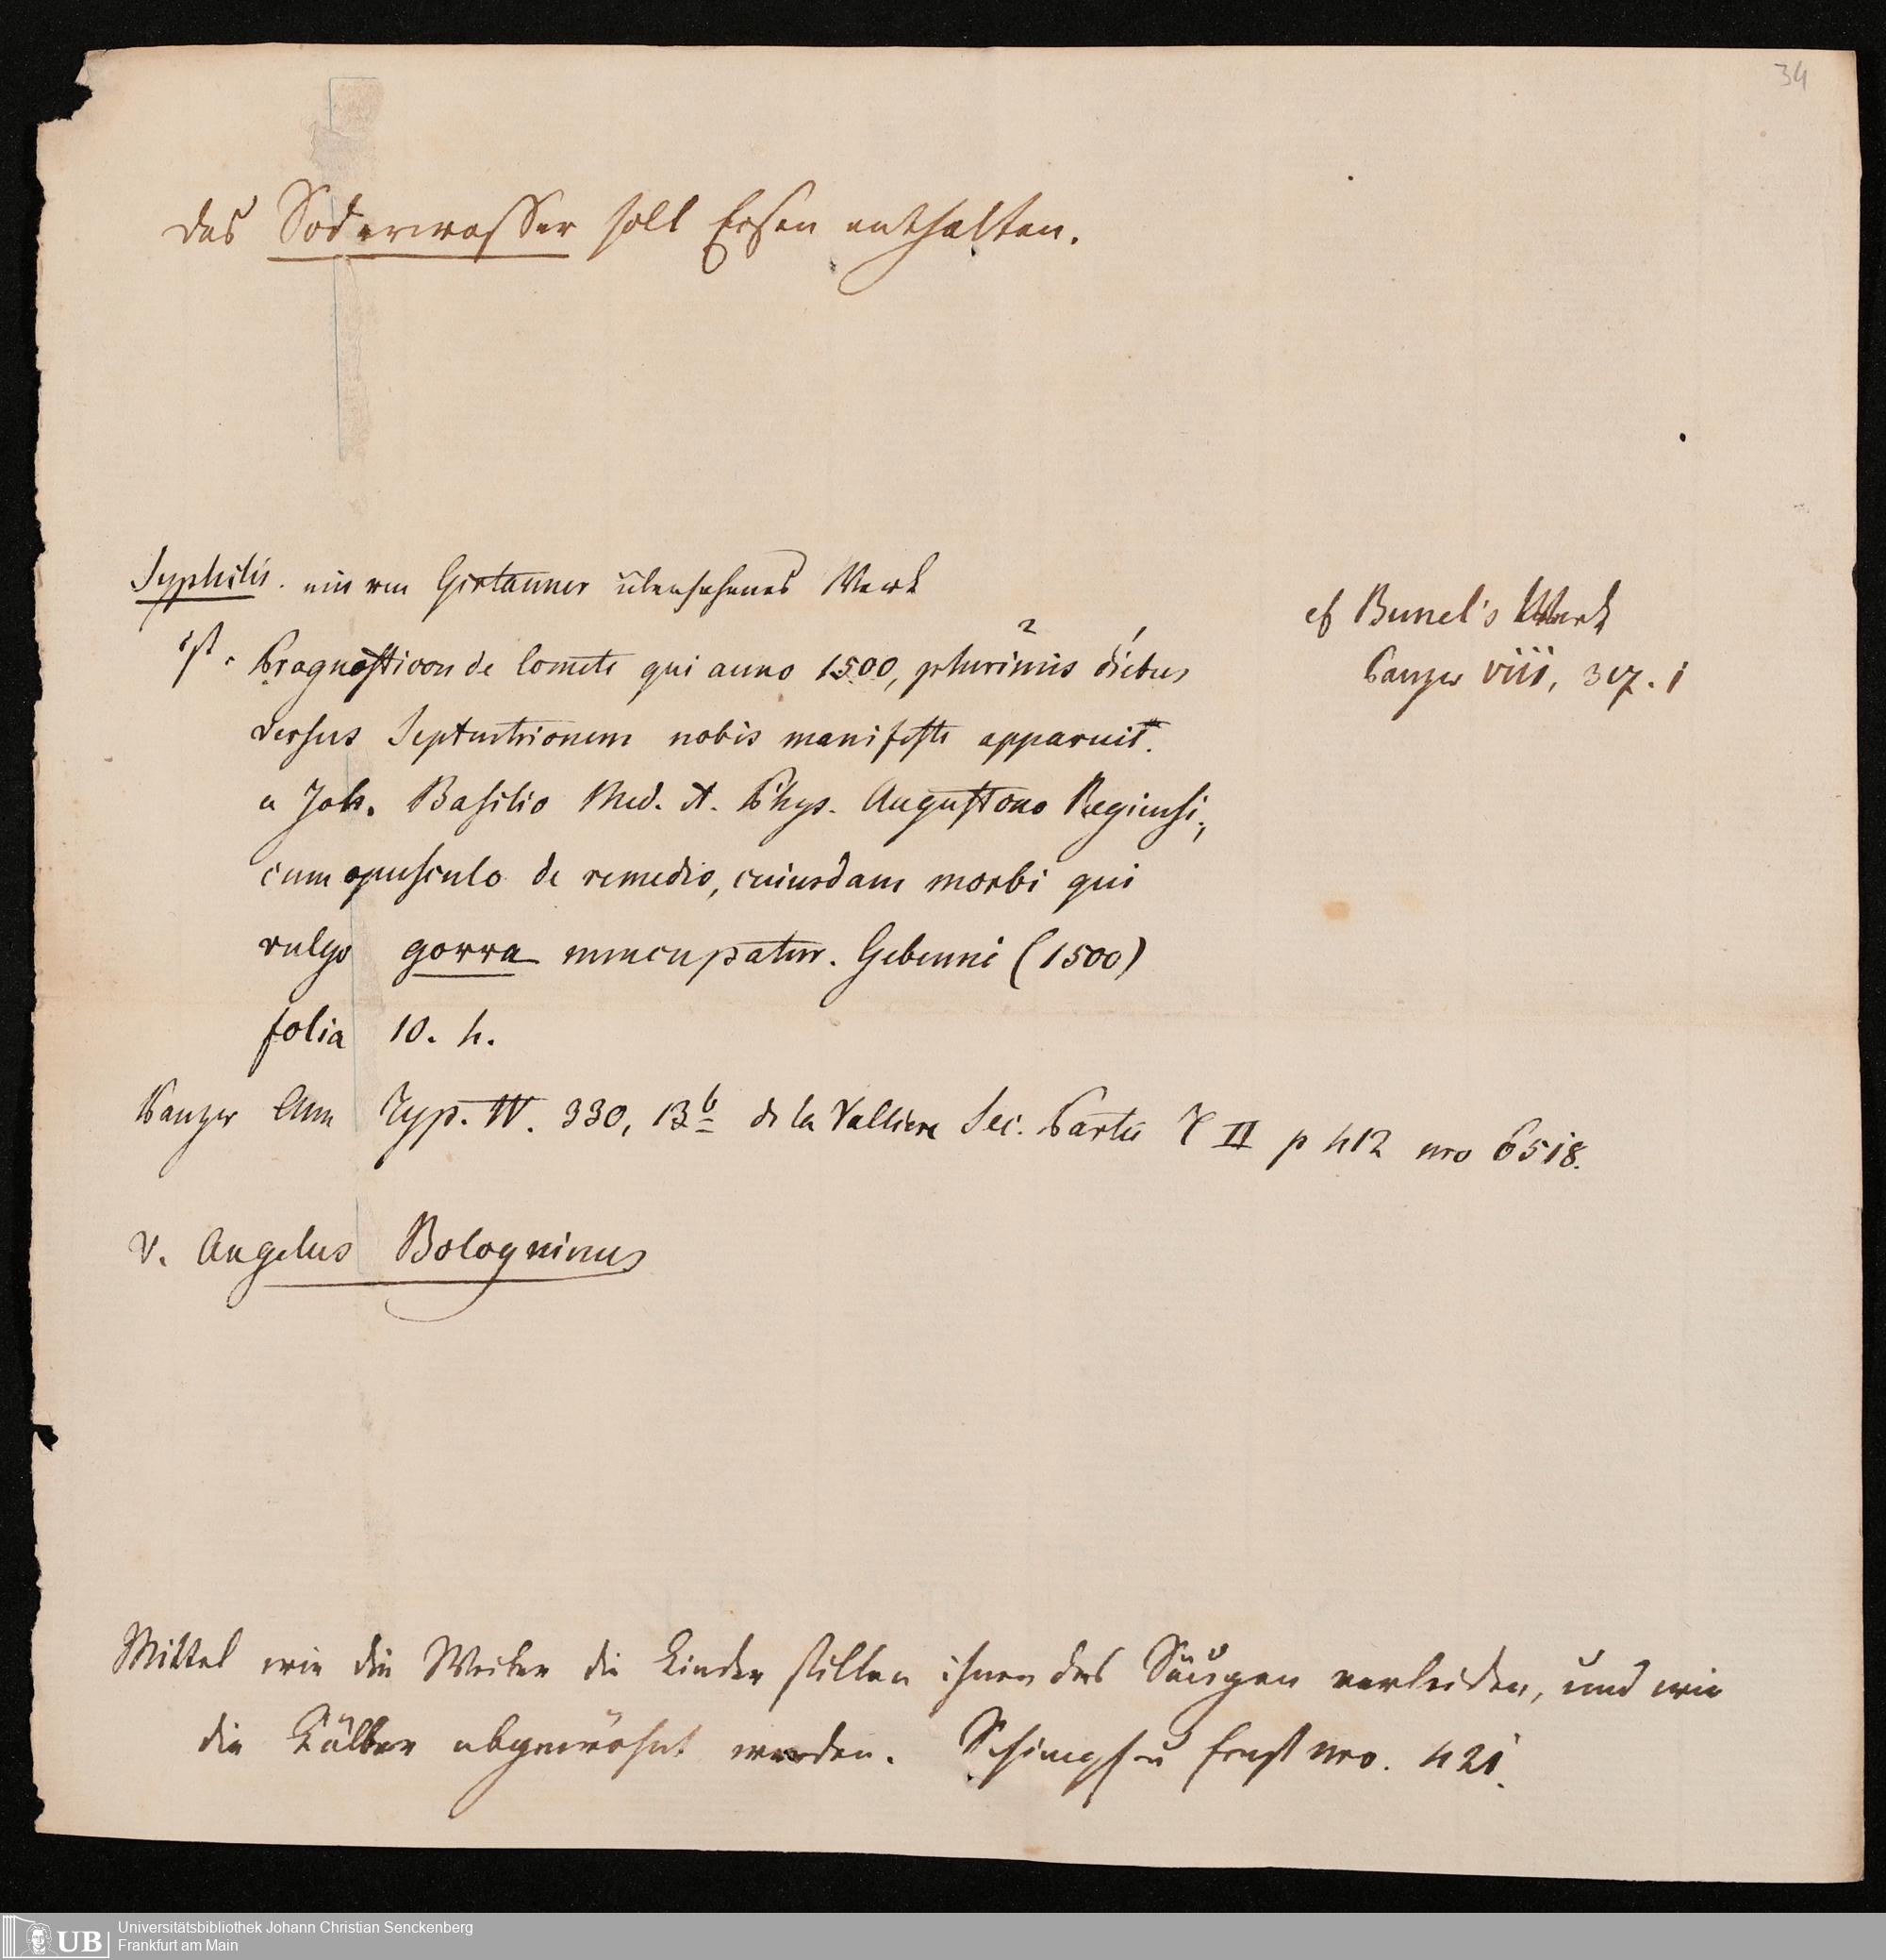 34
das Soderwasser soll Eisen enthalten.
Syphilis. ein von Girtanner übersehenes Werk
ist. Prognosticon de Comete qui anno 1500, plurimis diebus
2 1
versus Septentrionem nobis manifeste apparuit.
a Joh. Basilio Med. A. Phys. Augustono Regiensi,
cum opusculo de remedio, cuiusdam morbi qui
vulgo gorra nuncupatur. Gebenne (1500)
folia 10. 4.
cf Bunel's Werk
Panzer viii, 317. 1
Panzer Ann Typ. IV. 330, 13b de la Valliere Sec. Partie T II p 412 nro 6518.
V. Angelus Bologninus
Mittel wie die Weiber die Kinder stillen ihnen das Säugen verleiden, und wie
die Kälber abgewöhnt werden. Schimpf u Ernst nro. 421.
UB Universitätsbibliothek Johann Christian Senckenberg
Frankfurt am Main